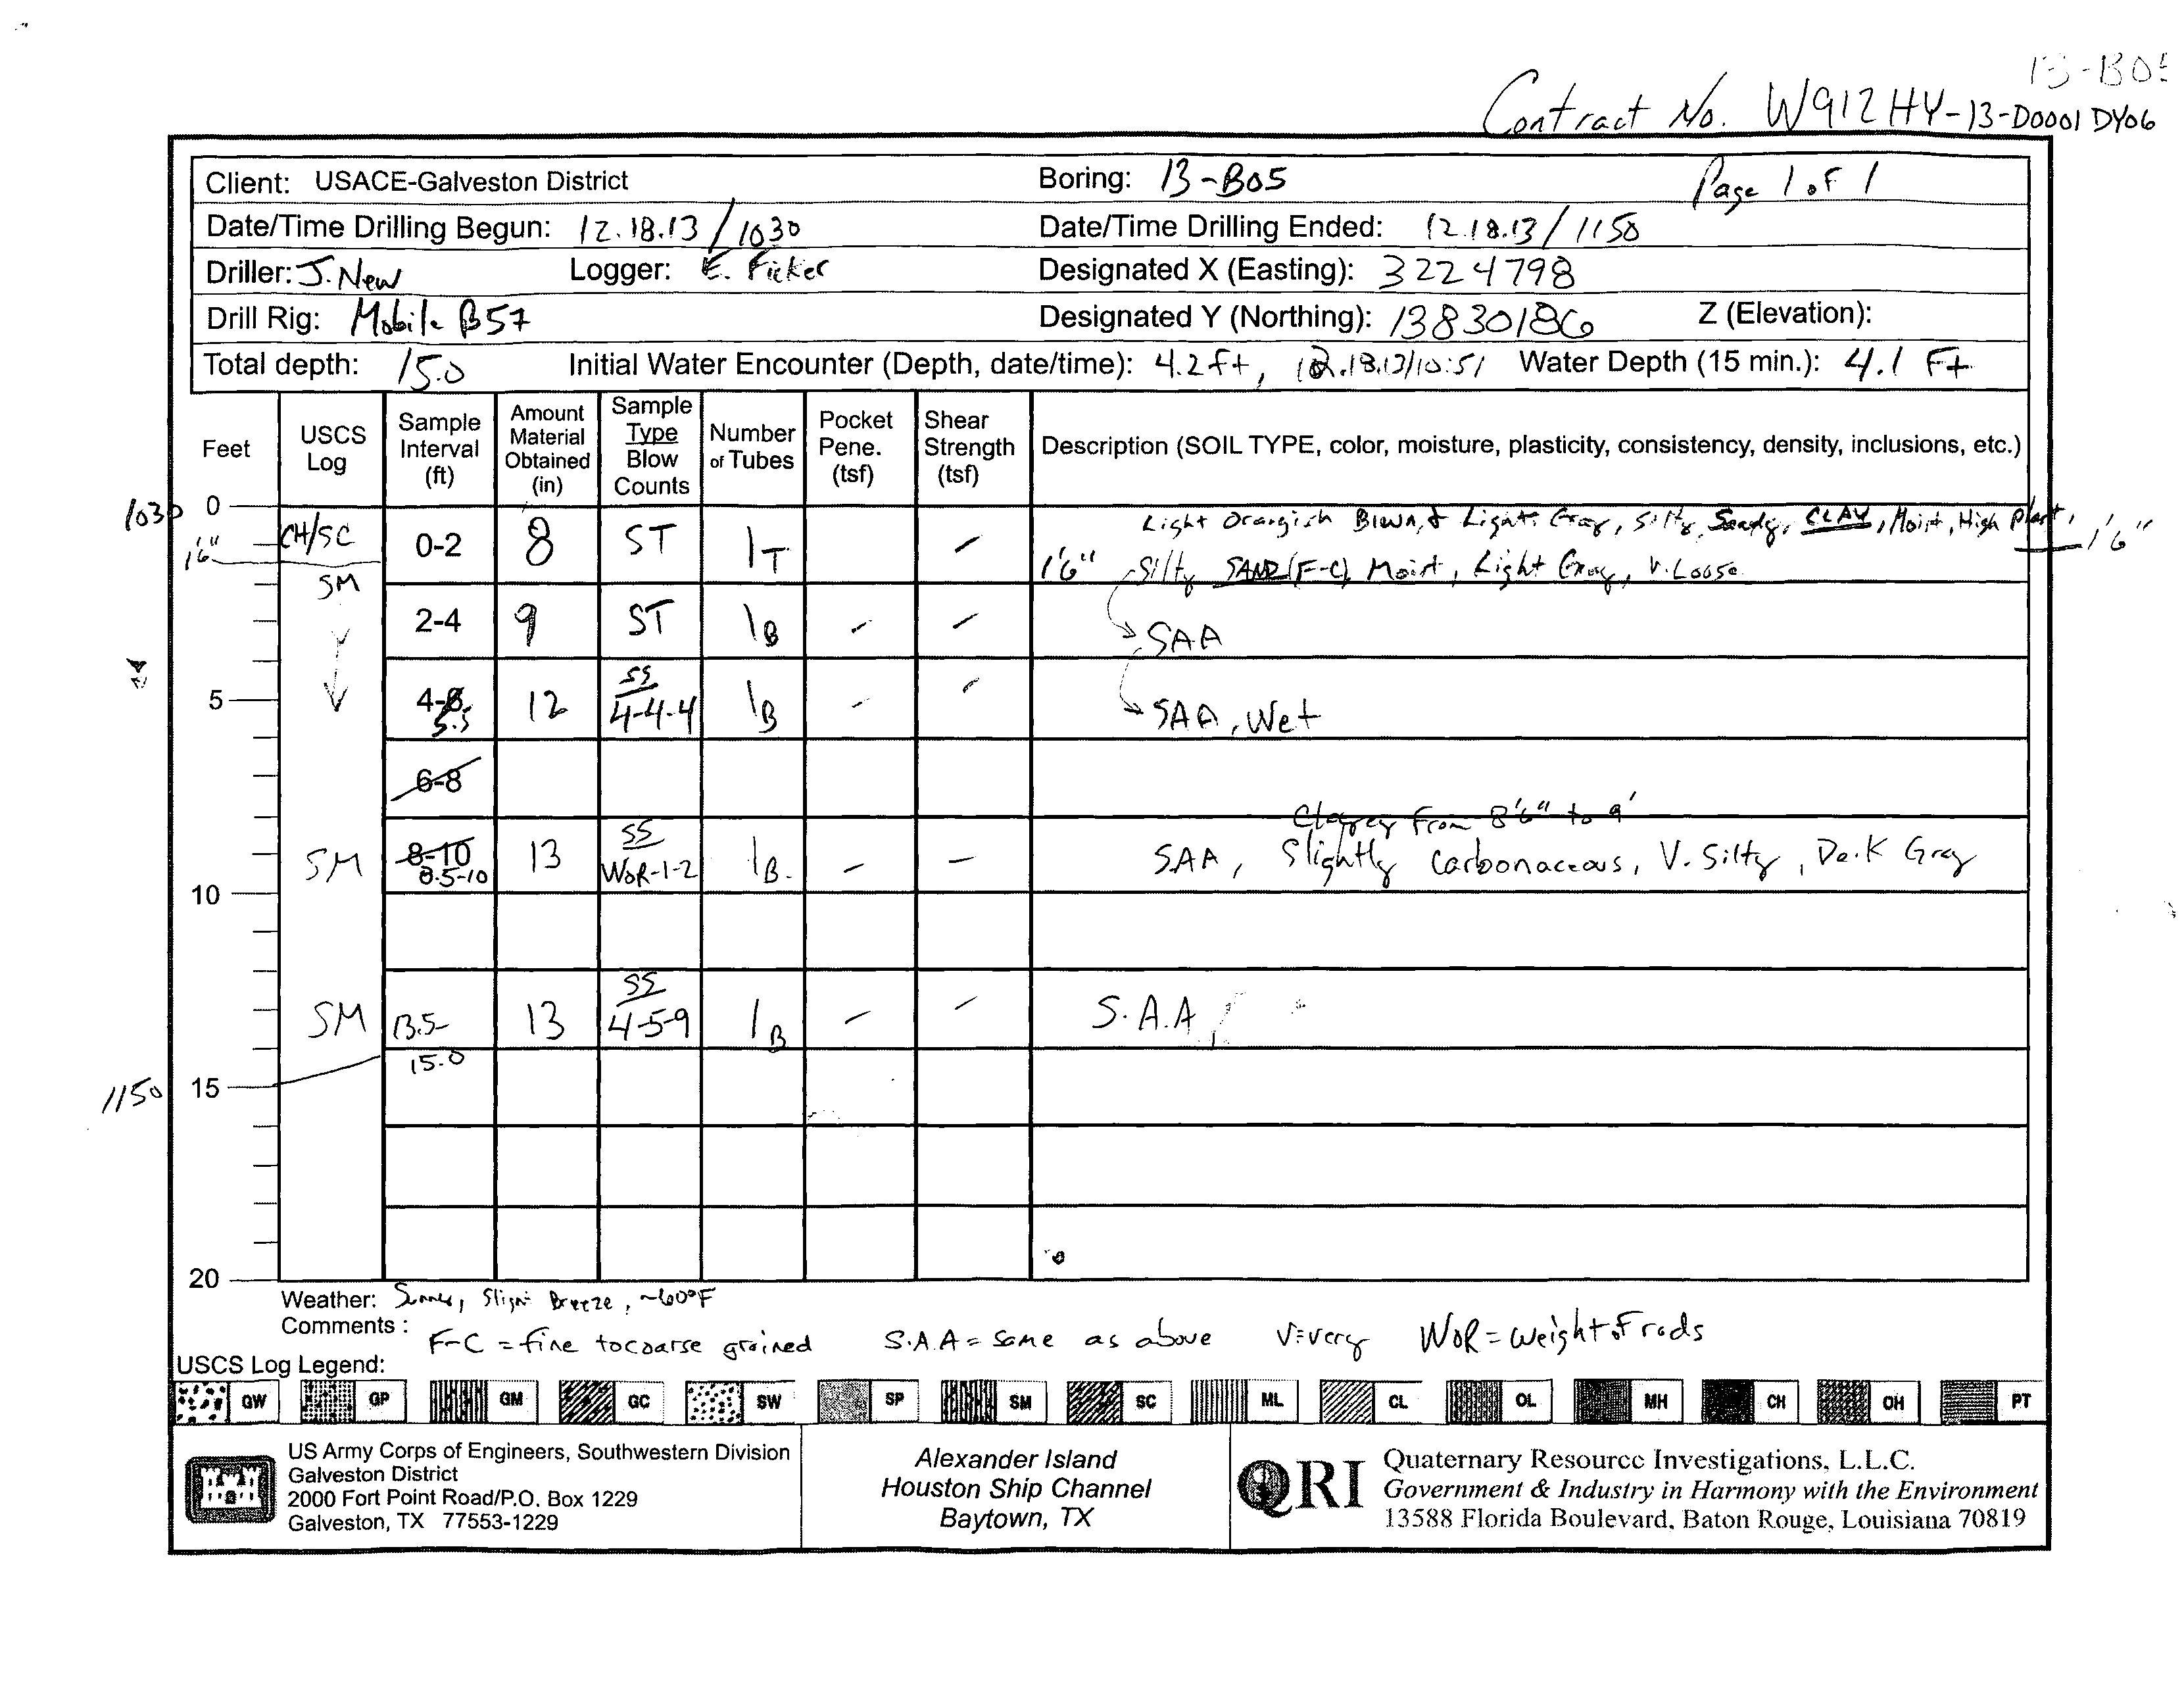 13-B05
Contract No. W912HY-13-D0001 DY06
Client: USACE-Galveston District Boring: 13-B05 Page 1 of 1
Date/Time Drilling Begun: 12.18.13/1030 Date/Time Drilling Ended: 12.18.13/1150
Driller: J. New Logger: E. Ficker Designated X (Easting): 3224798
Drill Rig: Mobile B57 Designated Y (Northing): 13830186 Z (Elevation):
Total depth: 15.0 Initial Water Encounter (Depth, date/time): 4.2 ft, 12.18.13/10:51 Water Depth (15 min.): 4.1 Ft
Feet USCS Log Sample Interval (ft) Amount Material Obtained (in) Sample Type Blow Counts Number of Tubes Pocket Pene. (tsf) Shear Strength (tsf) Description (SOIL TYPE, color, moisture, plasticity, consistency, density, inclusions, etc.)
1030 0
CH/SC 0-2 8 ST 1T - Light Orangish Brown, & Light Gray, Silty, Sandy, CLAY, Moist, High Plast, 1'6"
1'6" SM 1'6" Silty SAND (F-C) Moist, Light Gray, V. Loose
2-4 9 ST 1B - - SAA
5 4-6 5.5 12 SS 4-4-4 1B - - SAA, Wet
6-8
Clayey From 8'6" to 9'
SM 8-10 8.5-10 13 SS WOR-1-2 1B - - SAA, Slightly Carbonaceous, V. Silty, Dark Gray
10
SM 13.5-15.0 13 SS 4-5-9 1B - - S.A.A
1150 15
20
Weather: Sunny, Slight Breeze, ~60°F
Comments: F-C = fine to coarse grained S.A.A = Same as above V=very WOR = weight of rods
USCS Log Legend:
GW GP GM GC SW SP SM SC ML CL OL MH CH OH PT
US Army Corps of Engineers, Southwestern Division
Galveston District
2000 Fort Point Road/P.O. Box 1229
Galveston, TX 77553-1229
Alexander Island
Houston Ship Channel
Baytown, TX
QRI
Quaternary Resource Investigations, L.L.C.
Government & Industry in Harmony with the Environment
13588 Florida Boulevard, Baton Rouge, Louisiana 70819